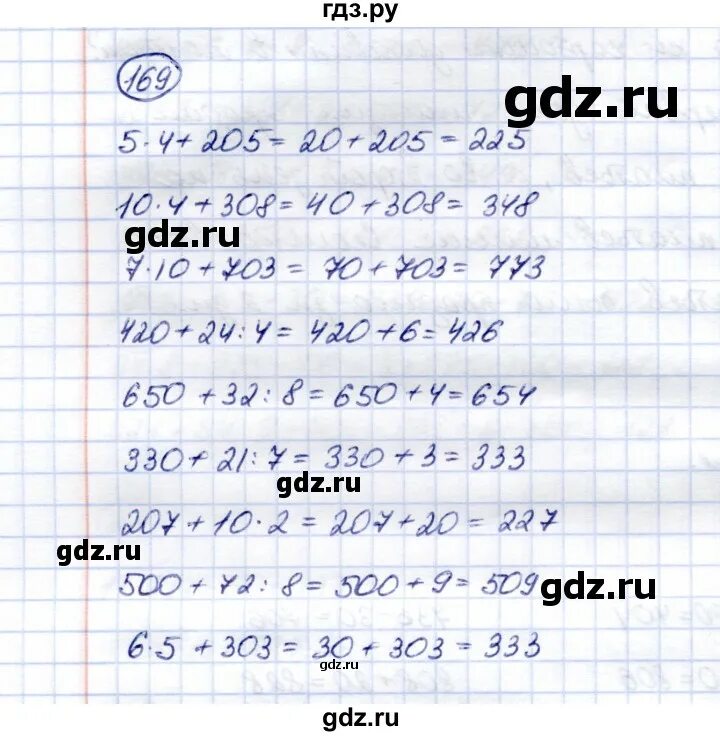 гдз.ру
169
gdz.ru
5·4+205=20+205=225
10·4+308=40+308=348
gdz.ru
7·10+703=70+703=773
420+24:4=420+6=426
650+32:8=650+4=654
330+21:7=330+3=333
gdz.ru
207+10·2=207+20=227
gdz.ru
500+72:8=500+9=509
gdz.ru
6·5+303=30+303=333
gdz.ru
gdz.ru